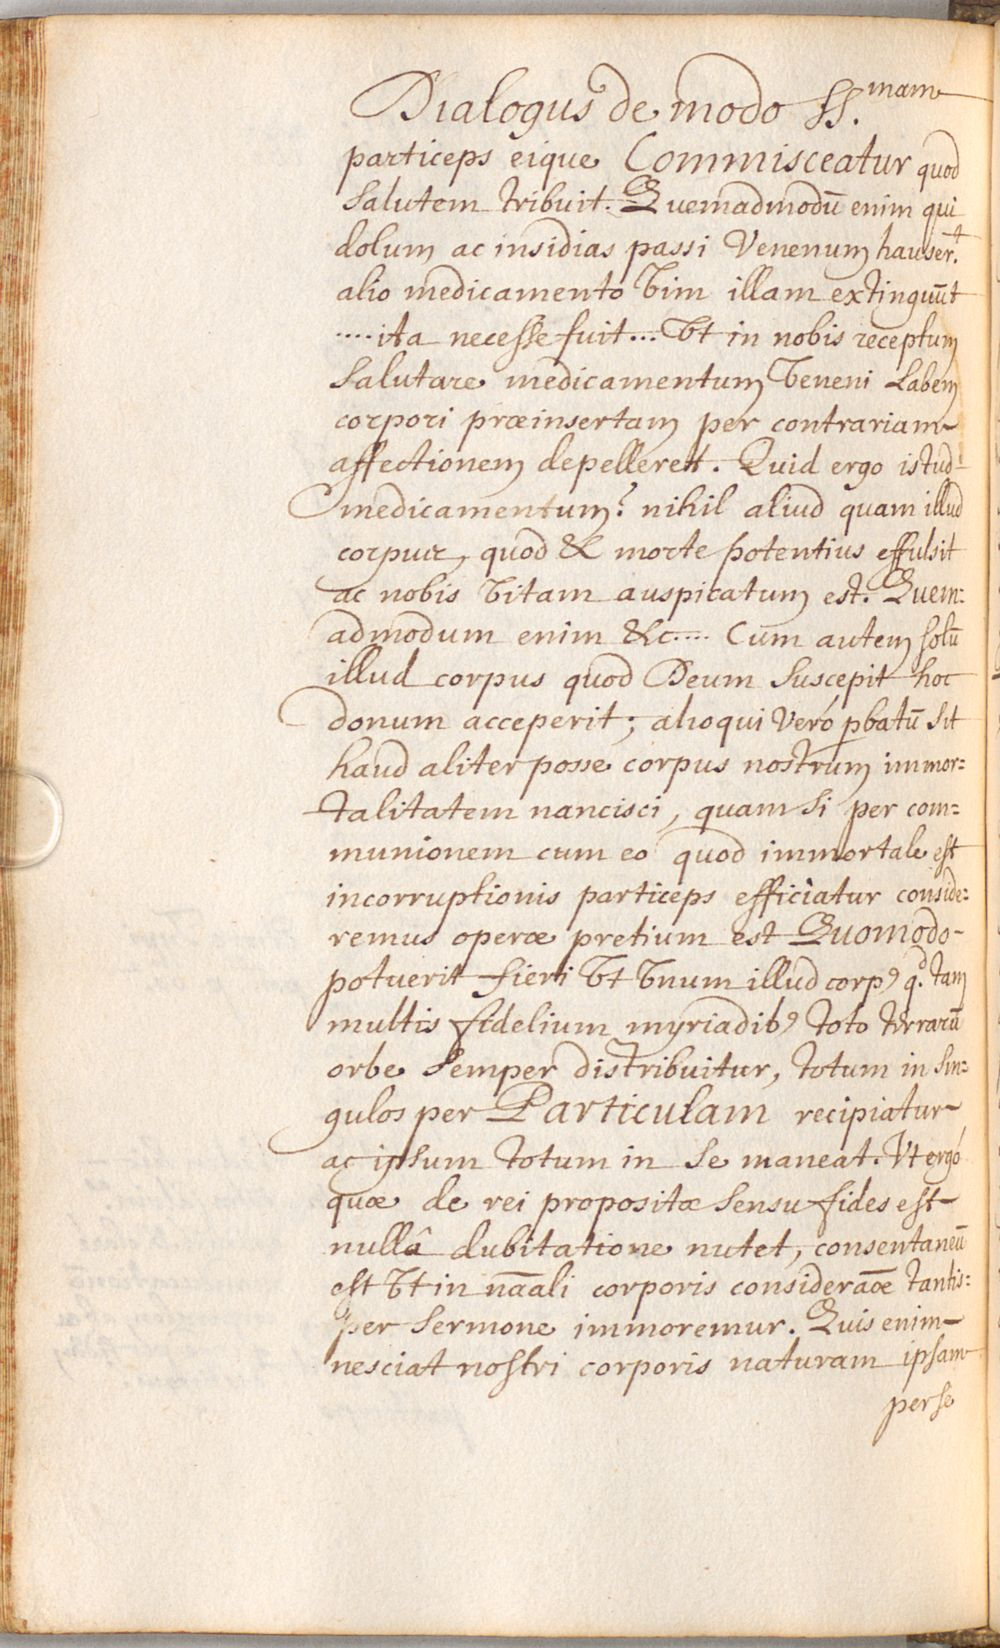 Dialogus de modo SS.mam
particeps eique Commisceatur quod
Salutem tribuit. Quemadmodū enim qui
dolum ac insidias passi Venenum hauser.t
alio medicamento Vim illam extinguūt
....ita necesse fuit... Vt in nobis receptum
Salutare medicamentum Veneni Labem
corpori præinsertam per contrariam
affectionem depelleret. Quid ergo istud
medicamentum? nihil aliud quam illud
corpus, quod & morte potentius effulsit
ac nobis Vitam auspicatum est. Quem:
admodum enim &c.... Cum autem solū
illud corpus quod Deum Suscepit hoc
donum acceperit; alioqui Veró pbatū Sit
haud aliter posse corpus nostrum immor:
talitatem nancisci, quam Si per com=
munionem cum eo quod immortale est
incorruptionis particeps efficiatur conside:
remus operæ pretium est Quomodo-
potuerit fieri Vt Vnum illud corp9 q.d tam
multis fidelium myriadib9 toto terrarū
orbe Semper distribuitur, totum in Sin:
gulos per Particulam recipiatur
ac ipsum totum in Se maneat. Vt ergó
quæ de rei propositæ Sensu fides est
nullâ dubitatione nutet, consentaneū
est Vt in nāali corporis considerāōe tantis:
per Sermone immoremur. Quis enim
nesciat nostri corporis naturam ipsam
per se